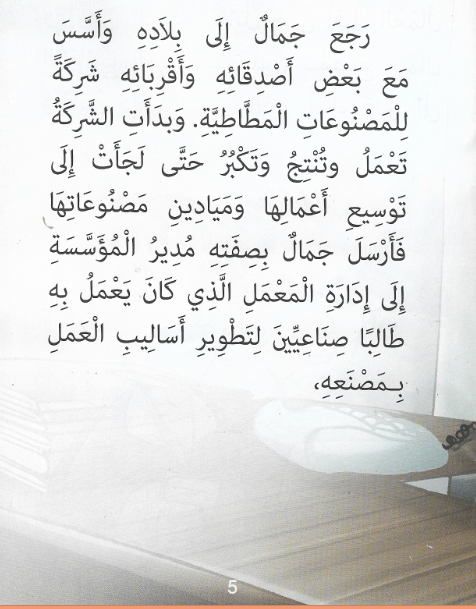 رَجَعَ جَمَالٌ إِلَى بِلَادِهِ وَأَسَّسَ
مَعَ بَعْضِ أَصْدِقَائِهِ وَأَقْرِبَائِهِ شَرِكَةً
لِلْمَصْنُوعَاتِ الْمَطَّاطِيَّةِ. وَبَدَأَتِ الشَّرِكَةُ
تَعْمَلُ وتُنْتِجُ وَتَكْبُرُ حَتَّى لَجَأَتْ إِلَى
تَوْسِيعِ أَعْمَالِهَا وَمَيَادِينِ مَصْنُوعَاتِهَا
فَأَرْسَلَ جَمَالٌ بِصِفَتِهِ مُدِيرُ الْمُؤَسَّسَةِ
إِلَى إِدَارَةِ الْمَعْمَلِ الَّذِي كَانَ يَعْمَلُ بِهِ
طَالِبًا صِنَاعِيِّينَ لِتَطْوِيرِ أَسَالِيبِ الْعَمَلِ
بِمَصْنَعِهِ،
5